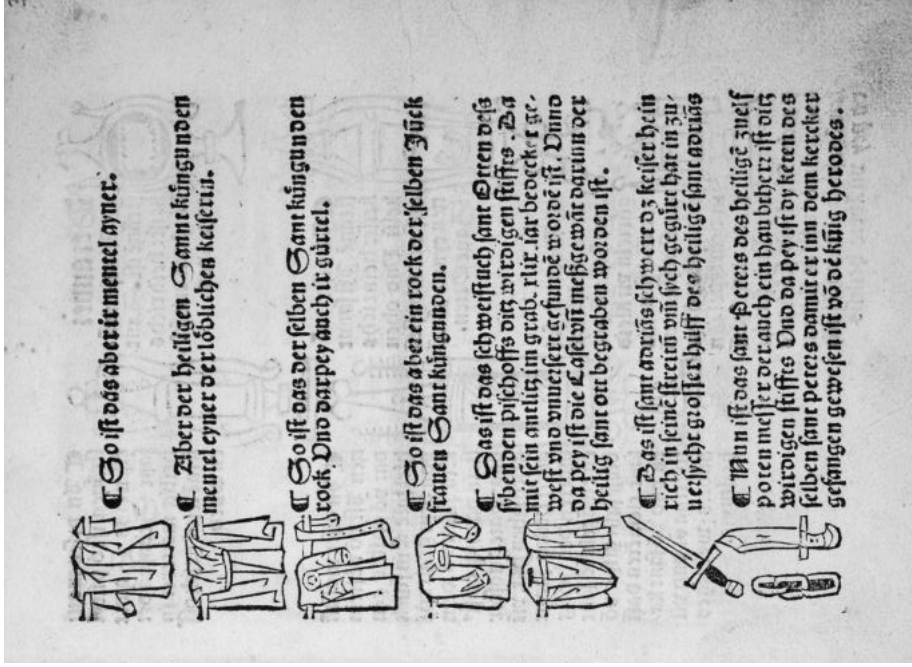 ¶ So ist das aber ir mentel ayner.
¶ Aber der heiligen Sannt kůngunden
mentel eyner der lőblichen keiserin.
¶ So ist das der selben Sant kůngunden
rock. Vnd darpey auch ir gürtel.
¶ So ist das aber ein rock der selben Jück
frawen Sant kůngunden.
¶ Das ist das schweistuch sant Otten dess
sybenden pischoffs ditz wirdigen stiffts. Da
mit sein antlitz im grab. xlix. iar bedecket ge-
west vnd vnuersert gefundē wordē ist. Vnnd
da pey ist die Casel vm̄ meßgewāt darinn der
heilig sant ott begraben worden ist.
¶ Das ist sant adriās schwert dz keiser hein
rich in seinē streitē vm̄ sych gegürt hat in zu-
uersycht grosser hilff des heiligē sant adriās
¶ Nun ist das sant Peters des heiligē zwelf
poten messer der auch ein haubtherr ist ditz
wirdigen stiffts Vnd da pey ist dy keten des
selben sant peters damit er inn dem kercker
gefangen gewesen ist vō dē kůnig herodes.